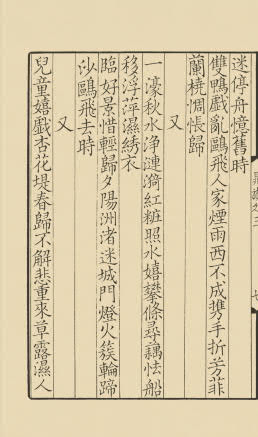 迷停舟憶舊時
雙鴨戲亂鷗飛人家煙雨西不成攜手折芳菲
蘭橈惆悵歸
又
一濠秋水淨漣漪紅粧照水嬉攀條尋藕怯船
移浮萍濕綉衣
臨好景惜輕歸夕陽洲渚迷城門燈火簇輪蹄
沙鷗飛去時
又
兒童嬉戲杏花堤春歸不解悲重來草露濕人